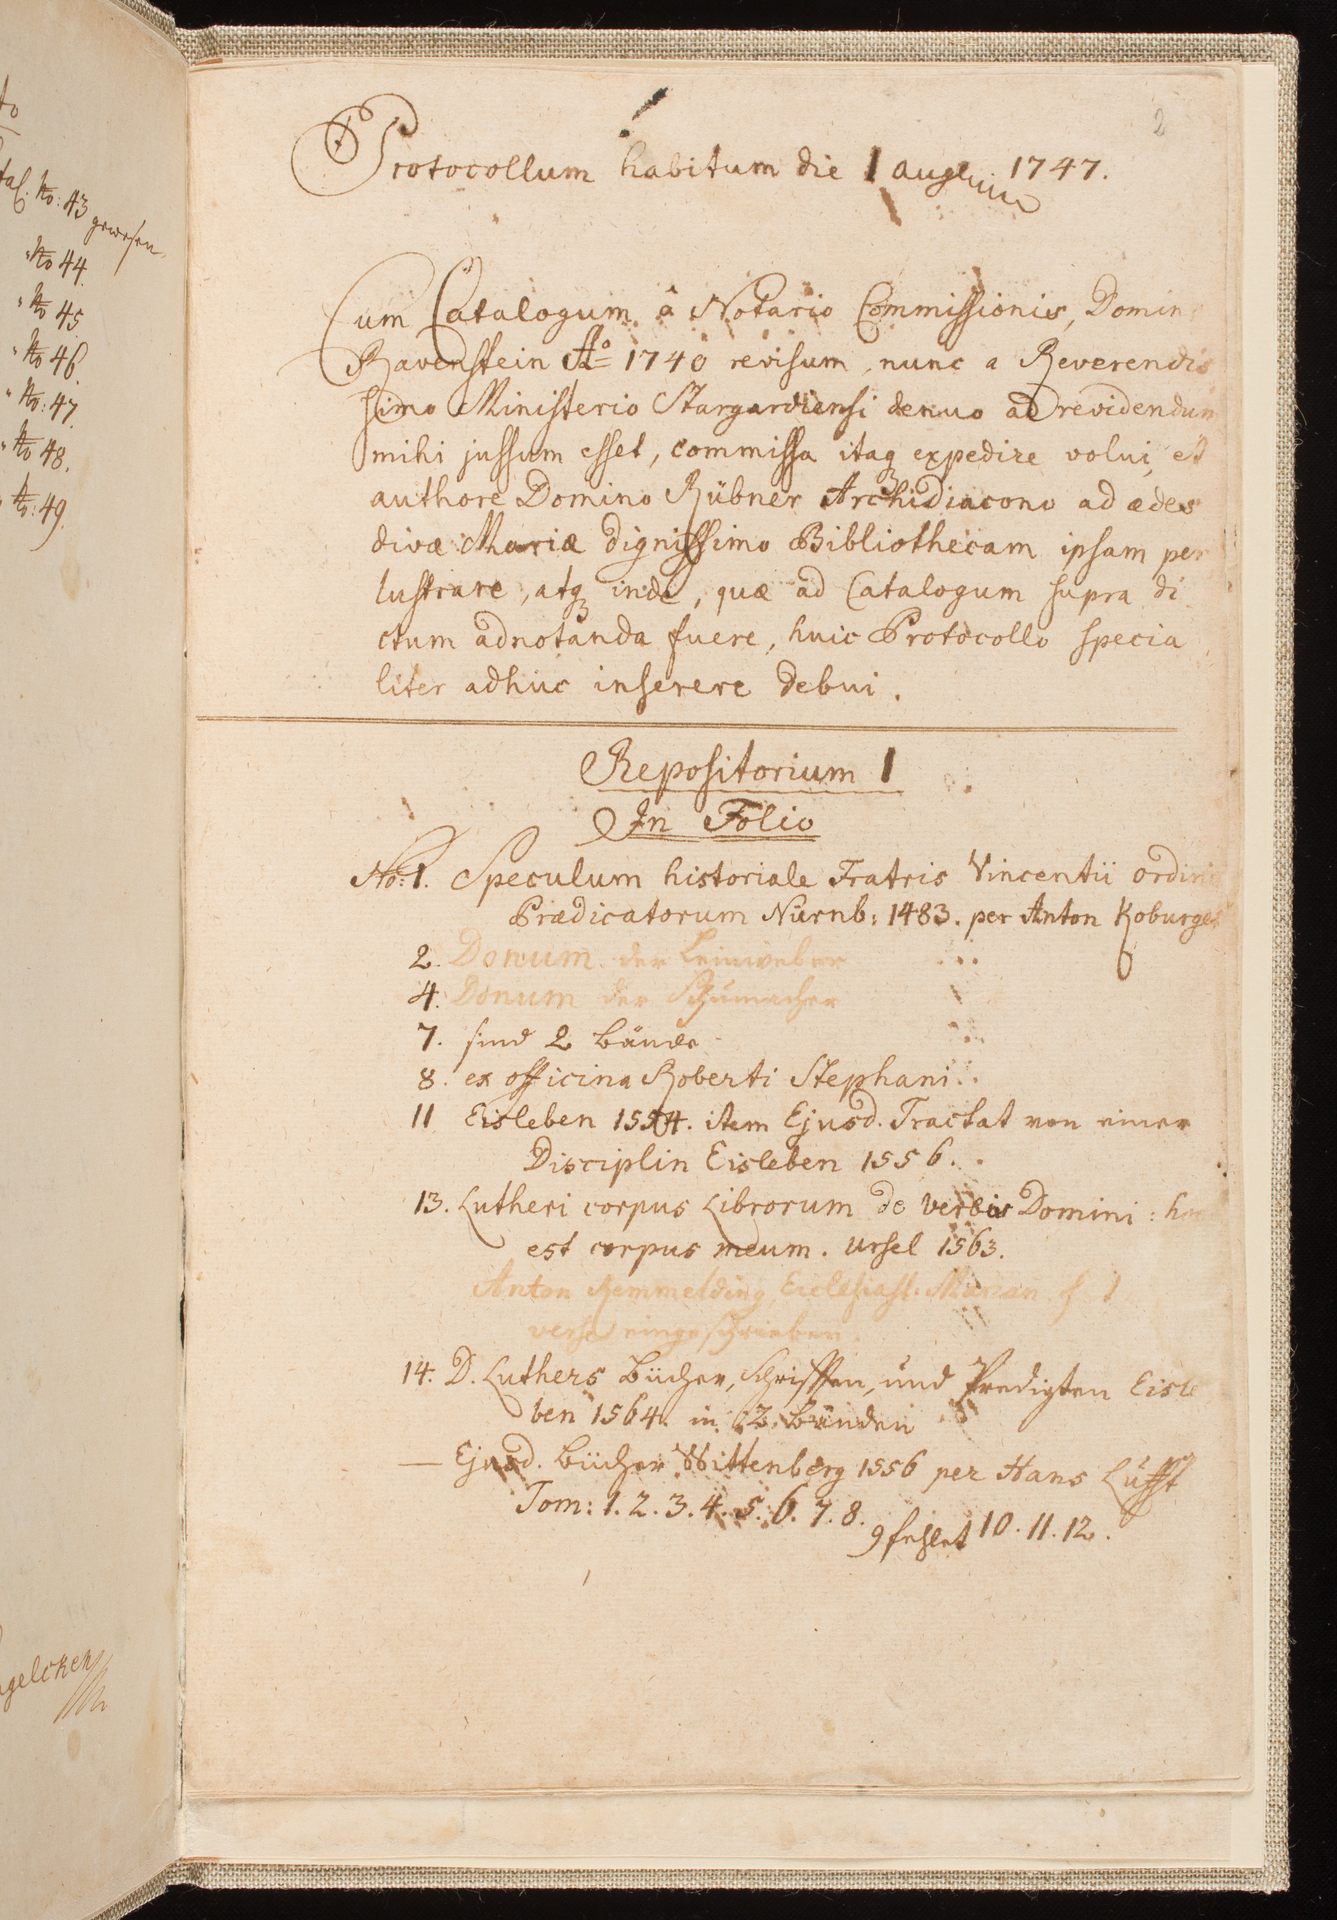 No: 43 gewesen.
No 44.
No 45
No 46.
No: 47.
No 48.
No: 49.
2
Protocollum habitum die 1 aug 1747.
Cum Catalogum â Notario Commissionis, Domin
Ravenstein Ao 1740 revisum, nunc a Reverendis
simo Ministerio Stargardiensi denuo ad revidendum
mihi jussum esset, commissa itaq expedire volui, et
authore Domino Rübner Archidiacono ad ædes
divæ Mariæ dignissimo Bibliothecam ipsam per
lustrare, atq inde, quæ ad Catalogum supra di
ctum adnotanda fuere, huic Protocollo specia
liter adhuc inserere debui.
Repositorium 1
In Folio
No: 1. Speculum historiale Fratris Vincentii ordinis
Prædicatorum Nürnb: 1483. per Anton Koburger
2. Donum der Leinweber
4. Donum der Schumacher
7. sind 2 Bände
8. ex officina Roberti Stephani.
11 Eisleben 1554. item Ejusd. Tractat von einer
Disciplin Eisleben 1556.
13. Lutheri corpus Librorum de verbis Domini: hoc
est corpus meum. Ursel 1563.
Anton Remmelding Ecclesiast. Marian.
verse eingeschrieben.
14. D. Luthers Bücher, Schrifften, und Predigten Eisle
ben 1564. in 2 Bänden
— Ejusd. Bücher Wittenberg 1556 per Hans Lufft
Tom: 1. 2. 3. 4. 5. 6. 7. 8. 9 fehlet 10. 11. 12.